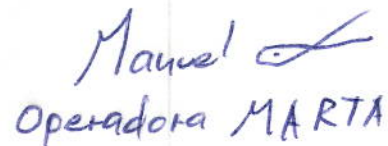 Manuel
Operadora MARTA